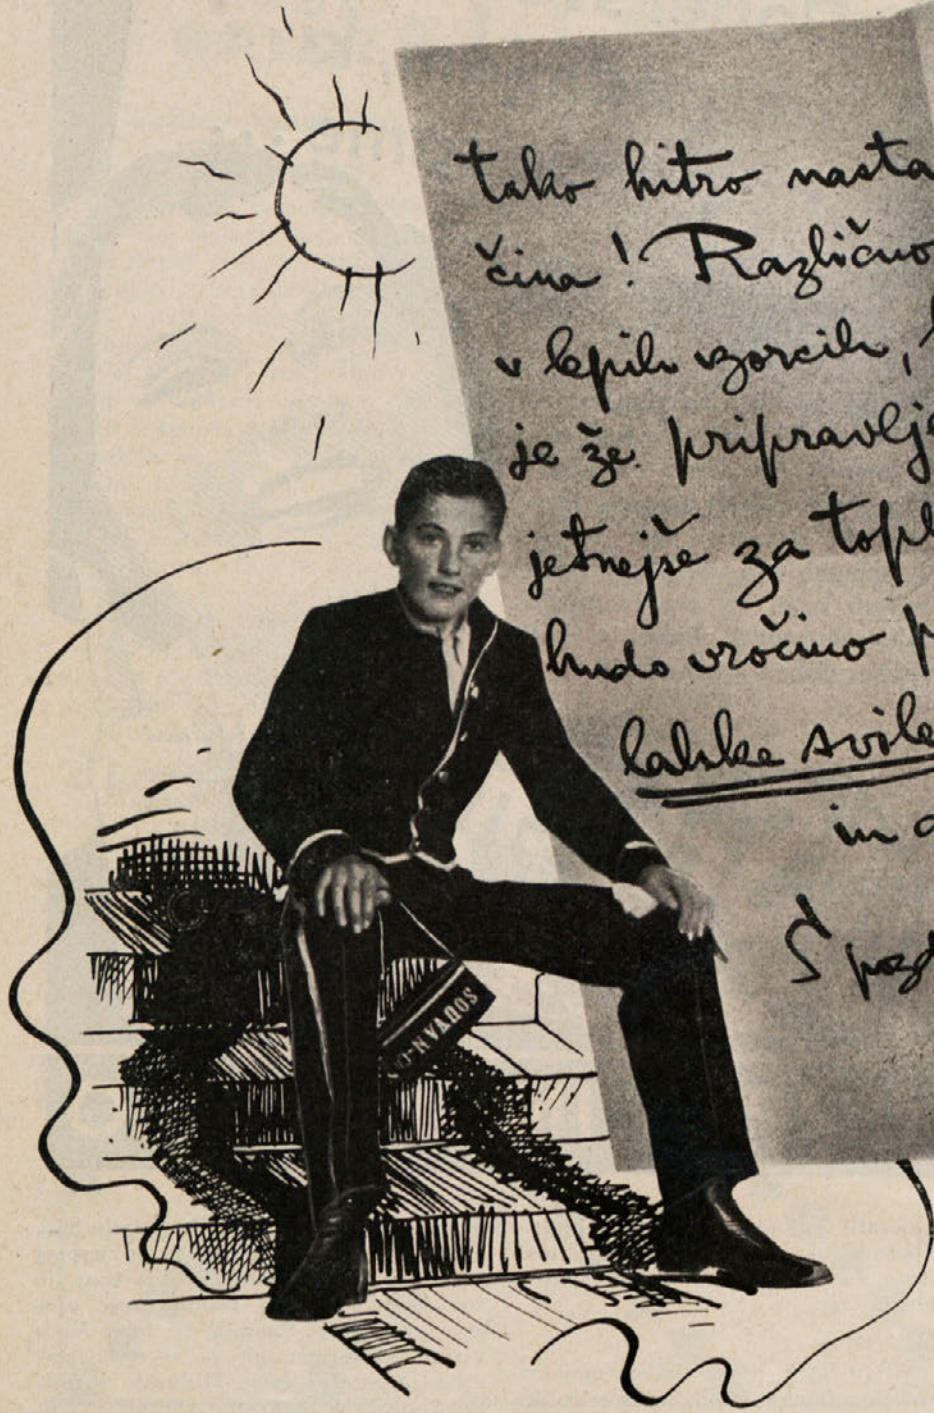 tako hitro nasta
čina! Različno
v lepih vzorcih,
je že pripravlje
jetnejše za topl
hudo vročino p
lahke svile
in
S pozd
SOUVAN-